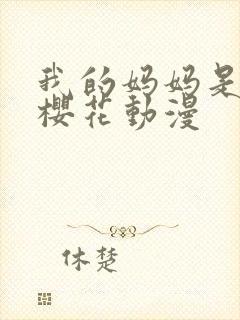 我的妈妈是
樱花動漫
休楚